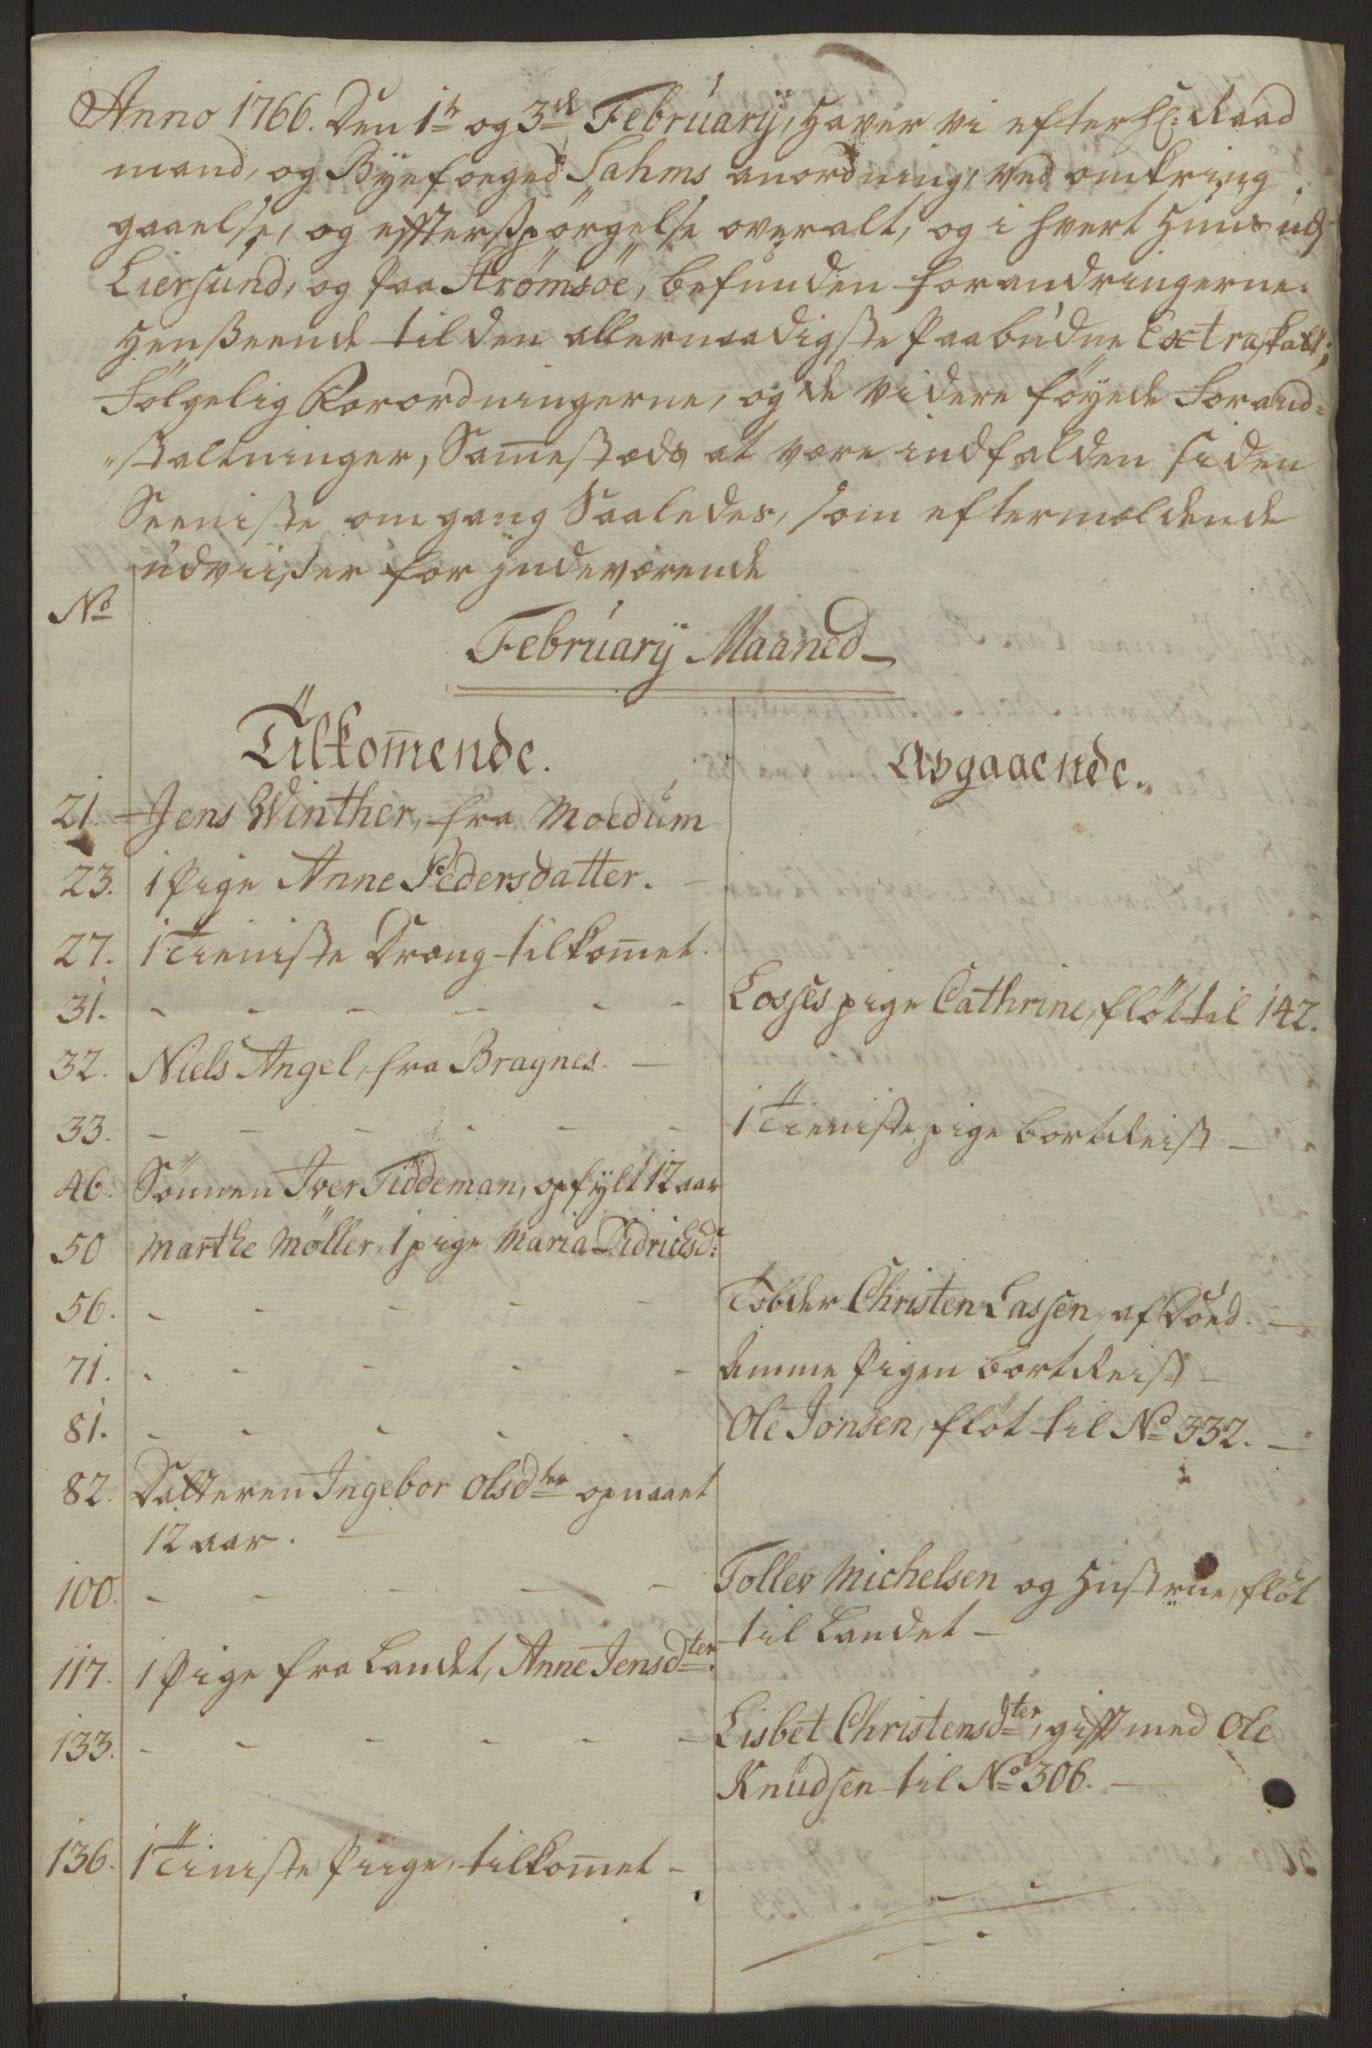 Anno 1766. Den 1te og 3de February, Haver vi efter Hr: Raad
mand, og Byefoeged Sahms anordning, ved omkring
gaaelse, og efterspörgelse overalt, og i hvert Huus
Liersund, og paa Strømsöe, befunden forandringerne
Henseende til den allernaadigste Paabudne Extraskatt;
Fölgelig Forordningerne, og de videre föyede Forand=
"staltninger, Sam̄esteds at være indfalden siden
Seeniste omgang Saaledes, som eftermeldende
udviiser for indeværende
No
February Maaned
Tilkom̄ende. Avgaaende.
21. Jens Winther, fra Moedum
23. 1 Pige Anne Pedersdatter. -
27. 1 Tieniste Dræng tilkom̄et.
31. - - - - - - Losses pige Cathrine, flöt til 142.
32. Niels Angel, fra Bragnes. -
33. - - - - - - 1 Tienistepige bortReist -
46. Sönnen Iver Tiddeman, opfylt 12 aar
50 Marthe Möller, 1 pige Maria Didrichsd:
56. - - - - - Tobder Christen Lassen, af Döed. -
71. - - - - - Amme Pigen bortReist -
81. - - - - - Ole Jonsen, flöt til No 332. -
82. Datteren Ingebor Olsdter opnaaet
12 aar. -
100. - - - - - Tollev Michelsen og Hustrue, flöt
til Landet -
117. 1 Pige fra Landet, Anne Jensdter.
133. - - - - - - Lisbet Christensdter, gift med Ole
Knudsen til No 306. -
136. 1 Tieniste Piige, tilkom̄et -